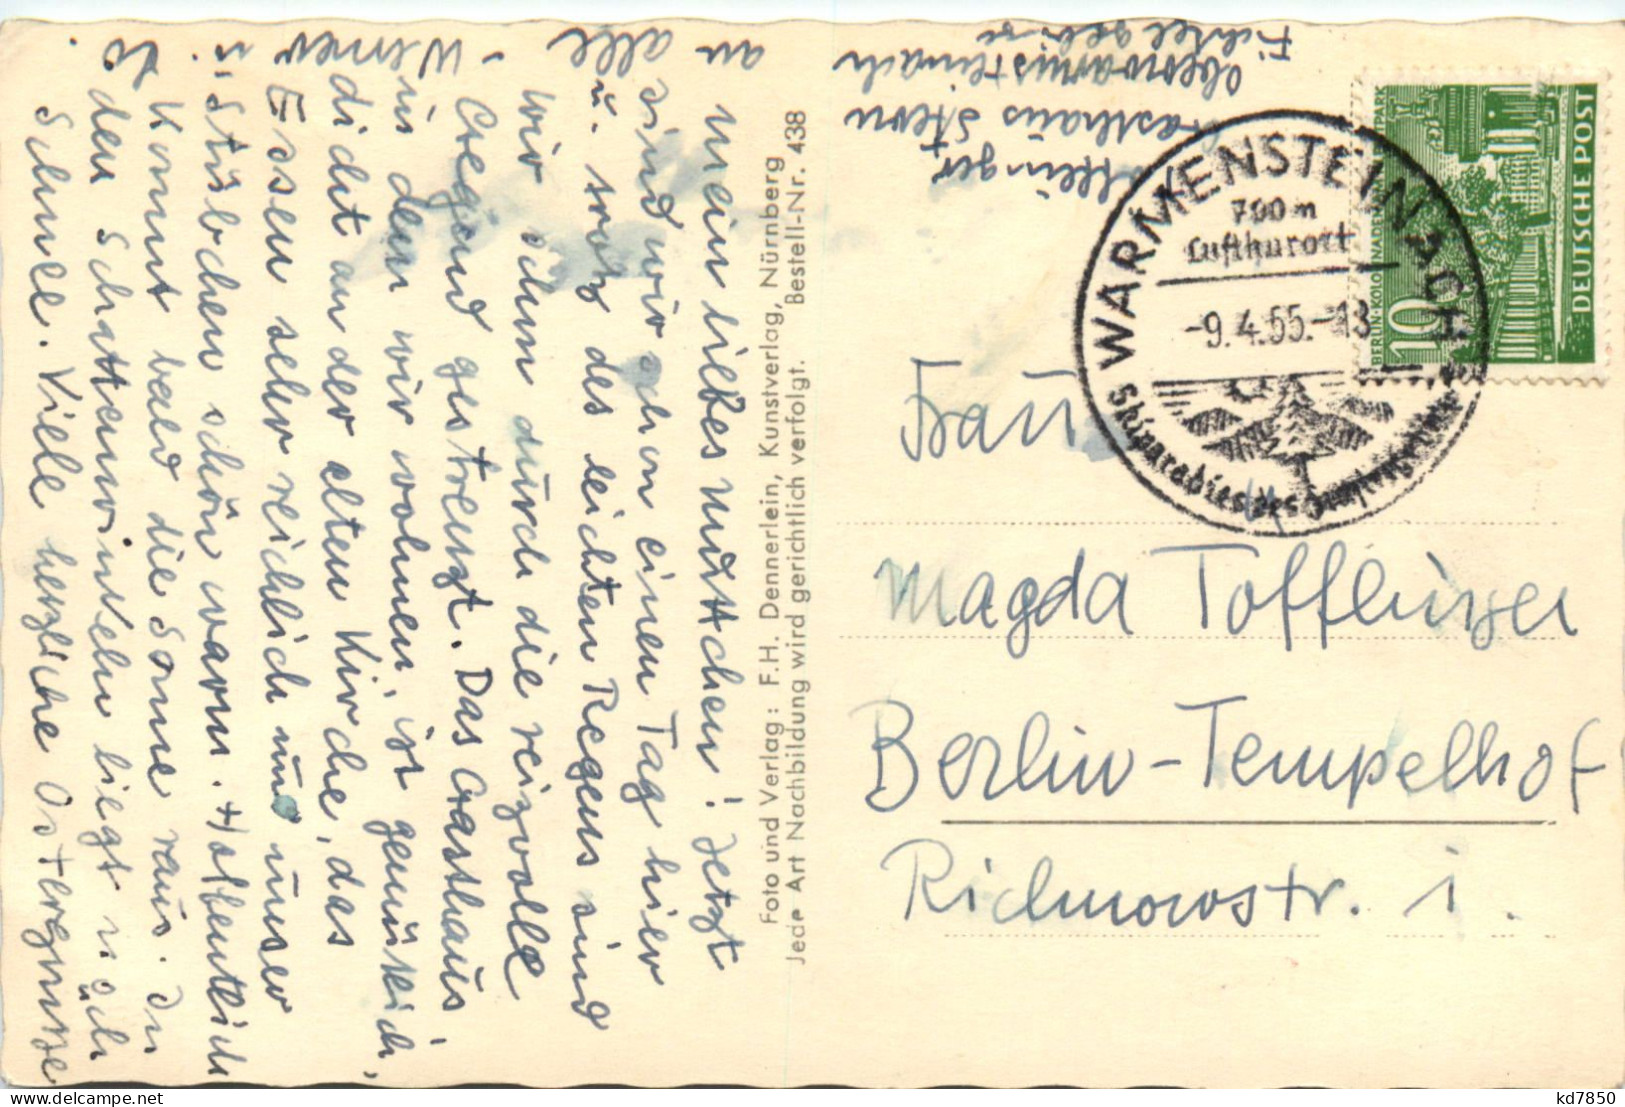 Mein liebes Muttchen! Jetzt
sind wir schon einen Tag hier
u. trotz des leichten Regens sind
wir schon durch die reizvolle
Gegend gestrenzt. Das Gasthaus
in dem wir wohnen, ist gemütlich,
dicht an der alten Kirche, das
Essen sehr reichlich und unser
Stübchen schön warm. Hoffentlich
kommt bald die Sonne raus. In
den Schattenwinkeln liegt noch
Schnee. Viele herzliche Ostergrüsse
an alle
Werner u.
Foto und Verlag: F.H. Dennerlein, Kunstverlag, Nürnberg
Jede Art Nachbildung wird gerichtlich verfolgt. Bestell-Nr. 438
Gasthaus Stern
Oberwarmsteinach
Fichtelgebirge
WARMENSTEINACH
700m
Luftkurort
-9.4.55.-13
Skiparadies des Fichtelgebirges
BERLIN-KOLONNADEN PARK
10
DEUTSCHE POST
Frau
Magda Tofflinger
Berlin-Tempelhof
Richnowstr. 1.
kd7850